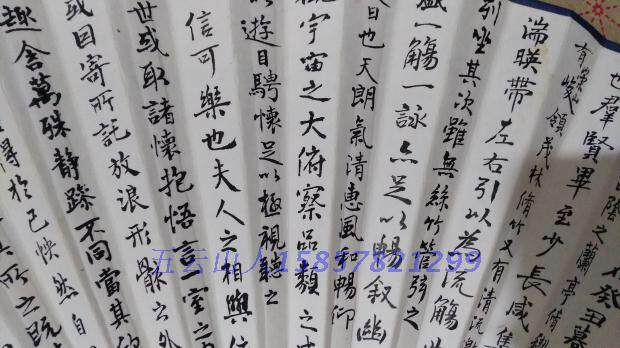 癸丑暮
陰之蘭亭脩
也羣賢畢至少長咸集
有崇山峻領茂林脩竹又有清流激
湍暎帶左右引以為流觴
引坐其次雖無絲竹管弦之
盛一觴一詠亦足以暢叙幽
日也天朗氣清惠風和暢仰
觀宇宙之大俯察品類之
以遊目騁懷足以極視聽之
信可樂也夫人之相與
世或取諸懷抱悟言一室之
或因寄所託放浪形骸之外
趣舍萬殊靜躁不同當其
得於己怏然自
其所之既
五云山人15837821299